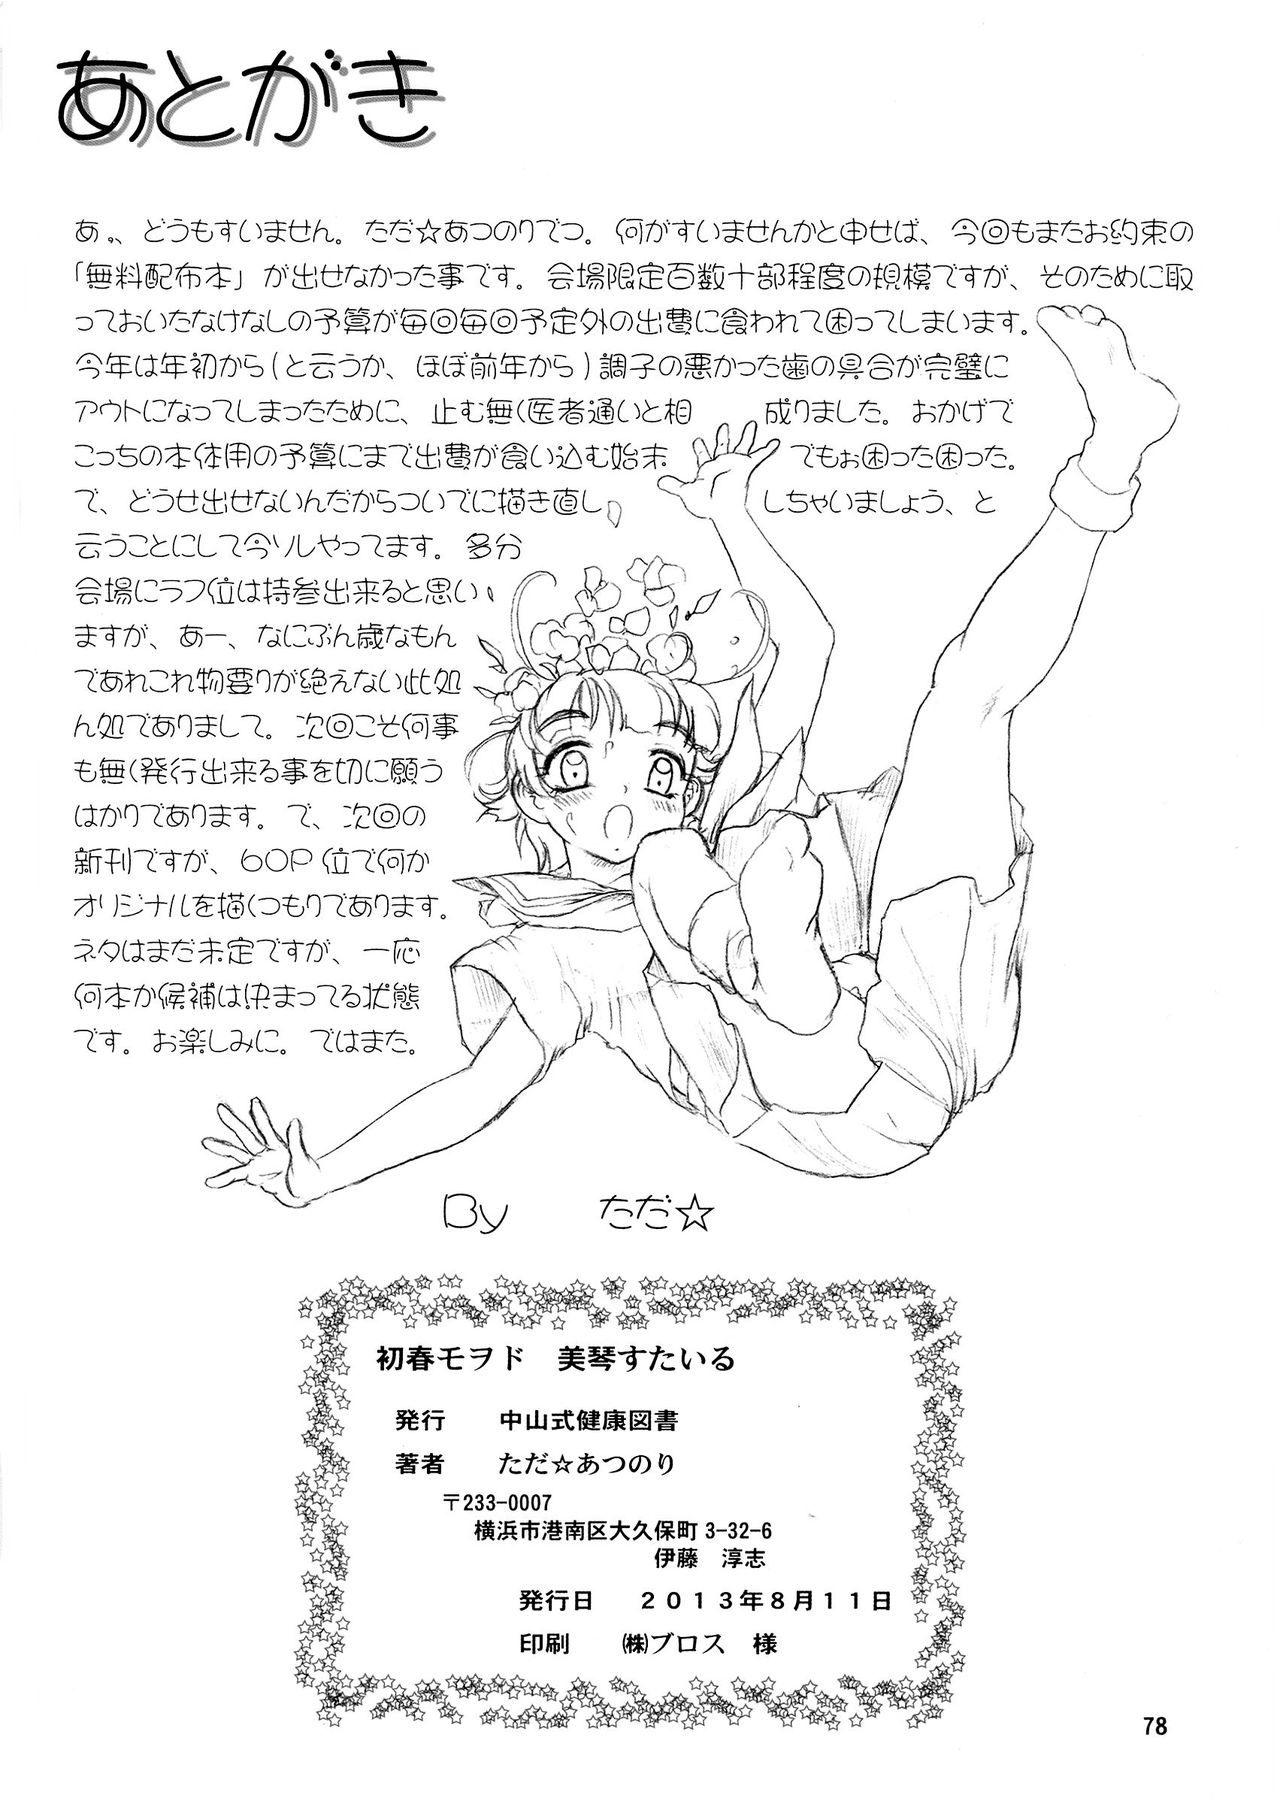 あとがき
あ。、どうもすいません。ただ☆あつのりでつ。何がすいませんかと申せば、今回もまたお約束の
「無料配布本」が出せなかった事です。会場限定百数十部程度の規模ですが、そのために取
っておいたなけなしの予算が毎回毎回予定外の出費に食われて困ってしまいます。
今年は年初から(と云うか、ほぼ前年から)調子の悪かった歯の具合が完璧に
アウトになってしまったために、止む無く医者通いと相成りました。おかげで
こっちの本体用の予算にまで出費が食い込む始末でもぉ困った困った。
で、どうせ出せないんだからついでに描き直ししちゃいましょう、と
云うことにして今ソルやってます。多分
会場にラフ位は持参出来ると思い
ますが、あー、なにぶん歳なもん
であれこれ物要りが絶えない此処
ん処でありまして。次回こそ何事
も無く発行出来る事を切に願う
はかりであります。で、次回の
新刊ですが、60P位で何か
オリジナルを描くつもりであります。
ネタはまだ未定ですが、一応
何本か候補は決まってる状態
です。お楽しみに。ではまた。
By ただ☆
初春モヲド 美琴すたいる
発行 中山式健康図書
著者 ただ☆あつのり
〒233-0007
横浜市港南区大久保町3-32-6
伊藤 淳志
発行日 2013年8月11日
印刷 ㈱ブロス 様
78